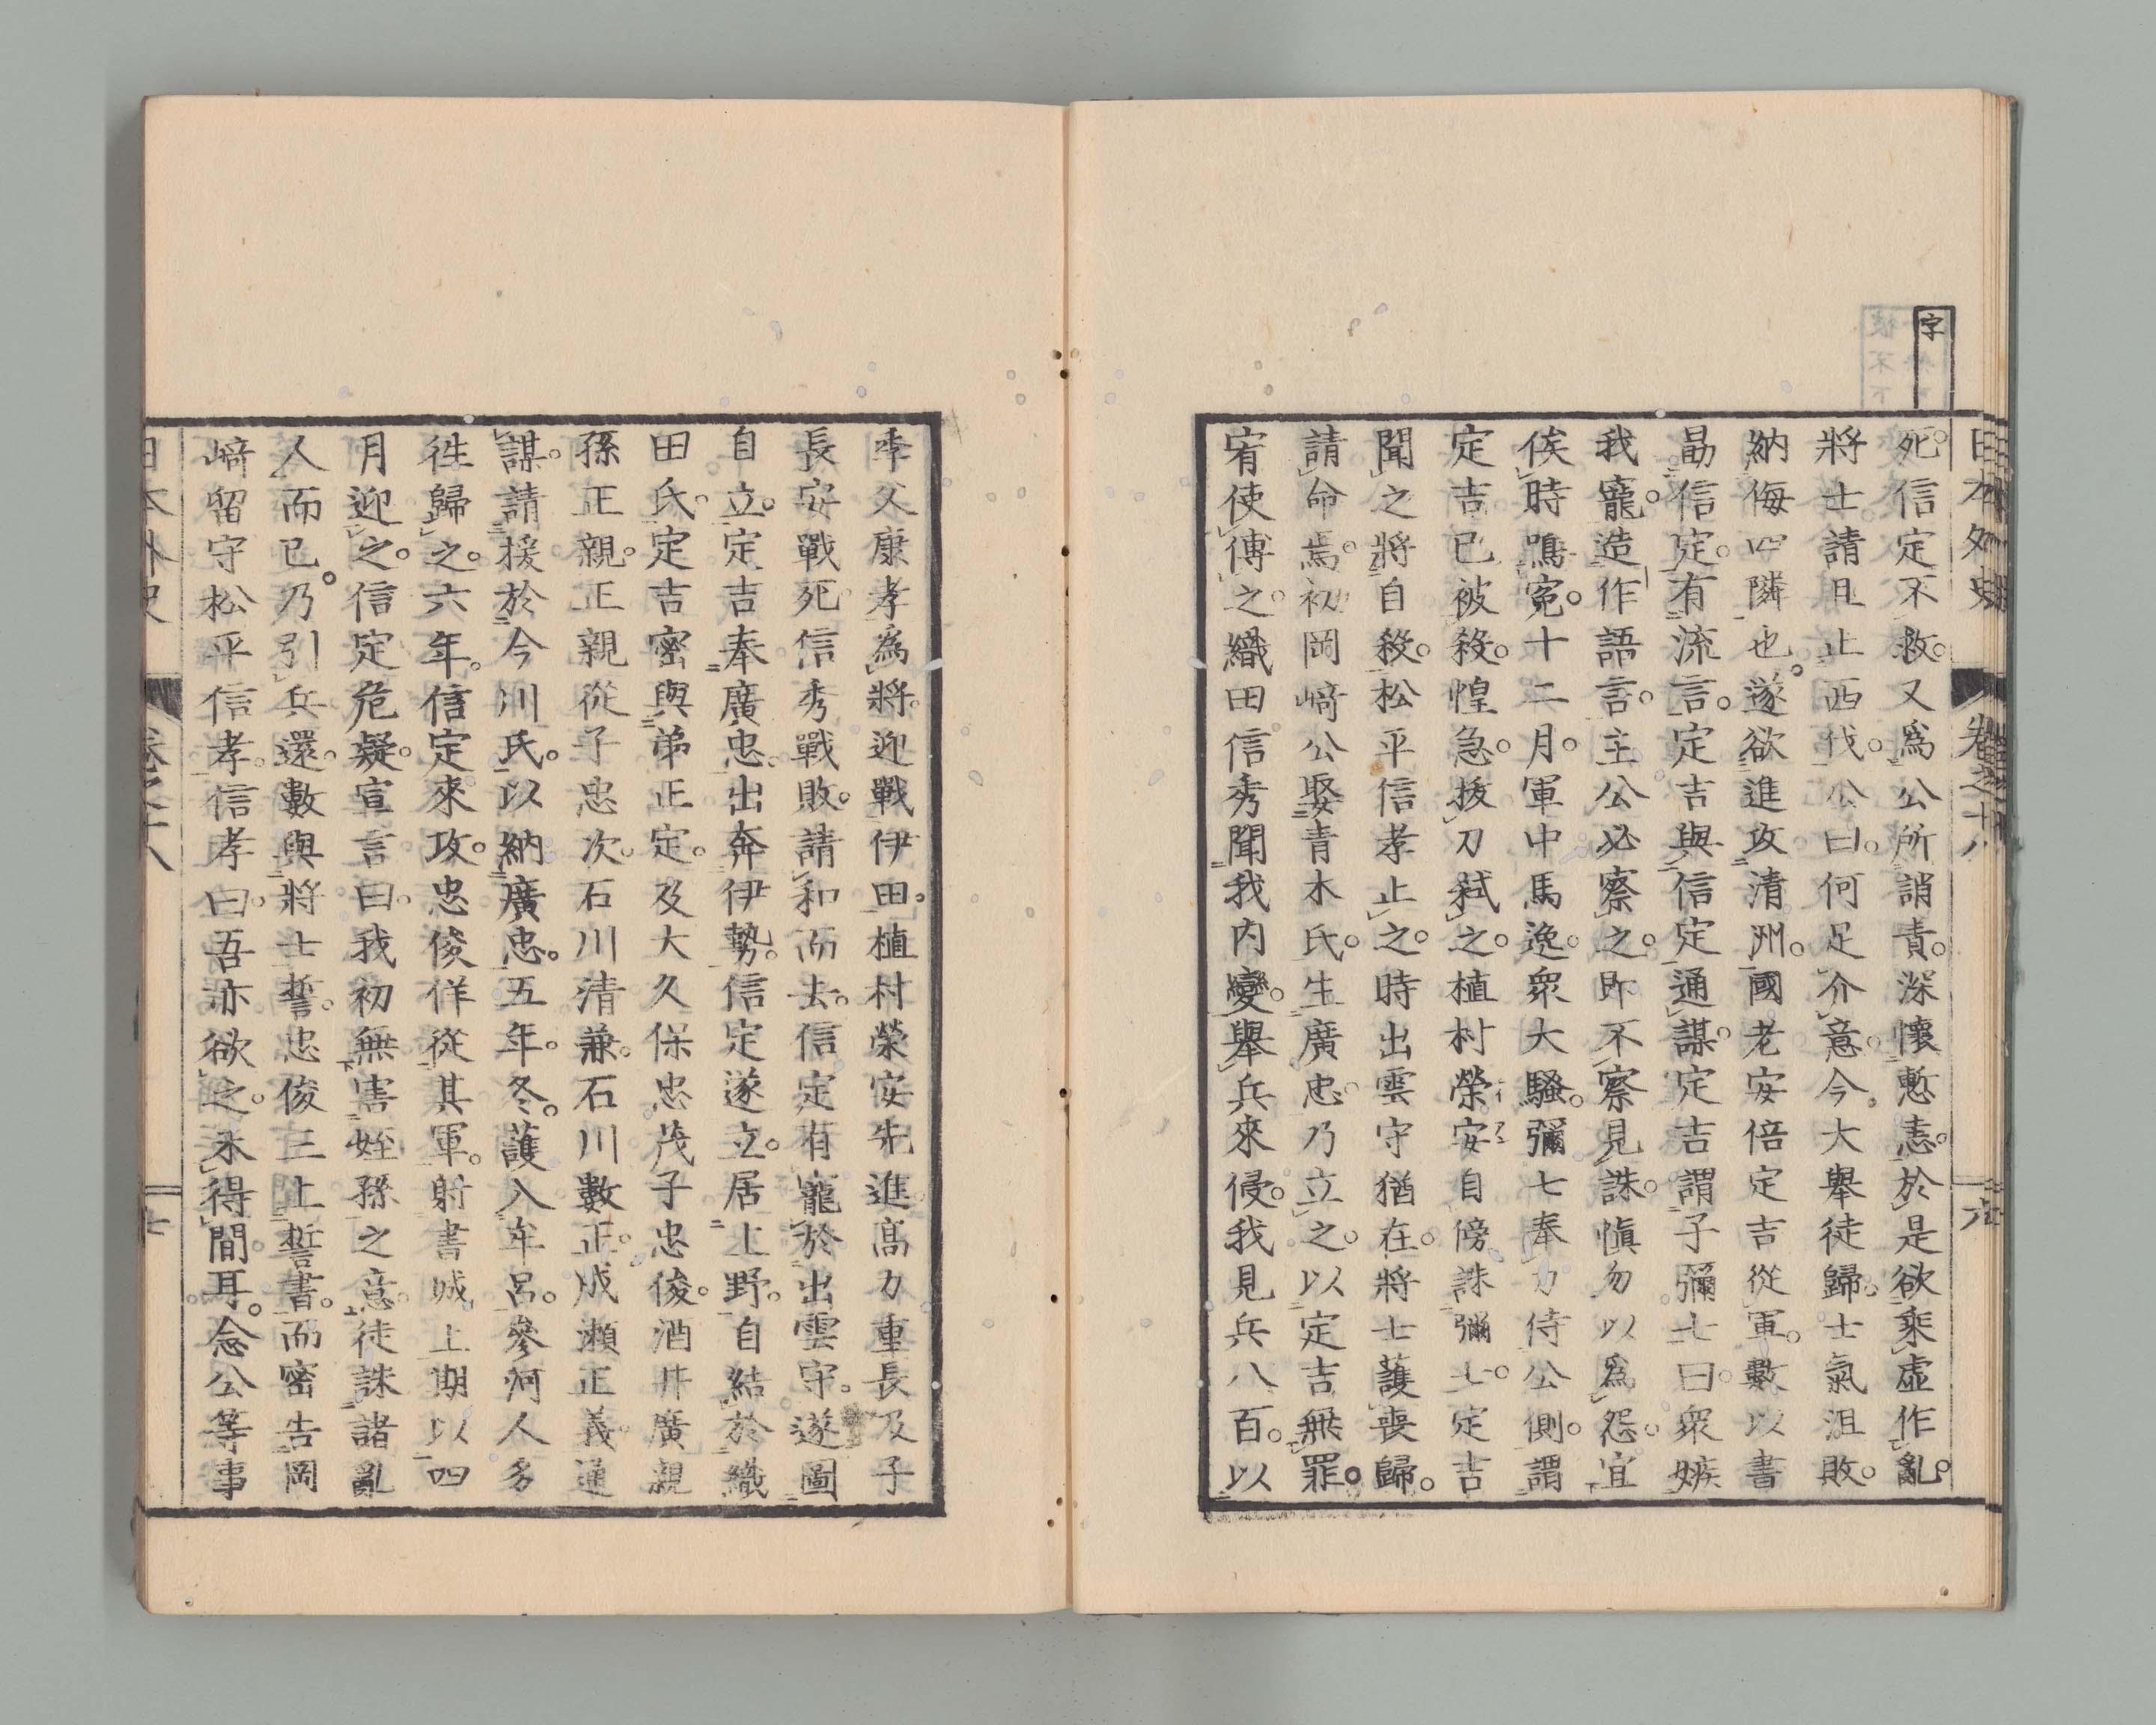 字
日本外史 卷之十八 六
死。信定不救。又爲公所誚責。深懷慙恚。於是欲乘虛作亂。
將士請且止西伐。公曰。何足介意。今大舉徒歸。士氣沮敗。
納侮四隣也。遂欲進攻清洲。國老安倍定吉從軍。數以書
勗信定。有流言。定吉與信定通謀。定吉謂子彌七曰。衆嫉
我寵。造作語言。主公必察之。即不察見誅。愼勿以爲怨。宜
俟時鳴冤。十二月。軍中馬逸。衆大騷。彌七奉刀侍公側。謂
定吉已被殺。惶急。拔刀弑之。植村榮安自傍誅彌七。定吉
聞之將自殺。松平信孝止之。時出雲守猶在。將士護喪歸。
請命焉。初岡﨑公娶青木氏。生廣忠。乃立之。以定吉無罪。
宥使傅之。織田信秀聞我內變。舉兵來侵。我見兵八百。以
季父康孝爲將。迎戰伊田。植村榮安先進。高力重長及子
長安戰死。信秀戰敗。請和而去。信定有寵於出雲守。遂圖
自立。定吉奉廣忠。出奔伊勢。信定遂立。居上野。自結於織
田氏。定吉密與弟正定。及大久保忠茂子忠俊。酒井廣親
孫正親。正親從子忠次。石川清兼。石川數正。成瀨正義。通
謀。請援於今川氏。以納廣忠。五年。冬。護入牟呂。參河人多
徃歸之。六年。信定來攻。忠俊佯從其軍。射書城上。期以四
月迎之。信定危疑。宣言曰。我初無害姪孫之意。徒誅諸亂
人而已。乃引兵還。數與將士誓。忠俊三上誓書。而密告岡
﨑留守松平信孝。信孝曰。吾亦欲之。未得間耳。念公等事
日本外史 卷之十八 七